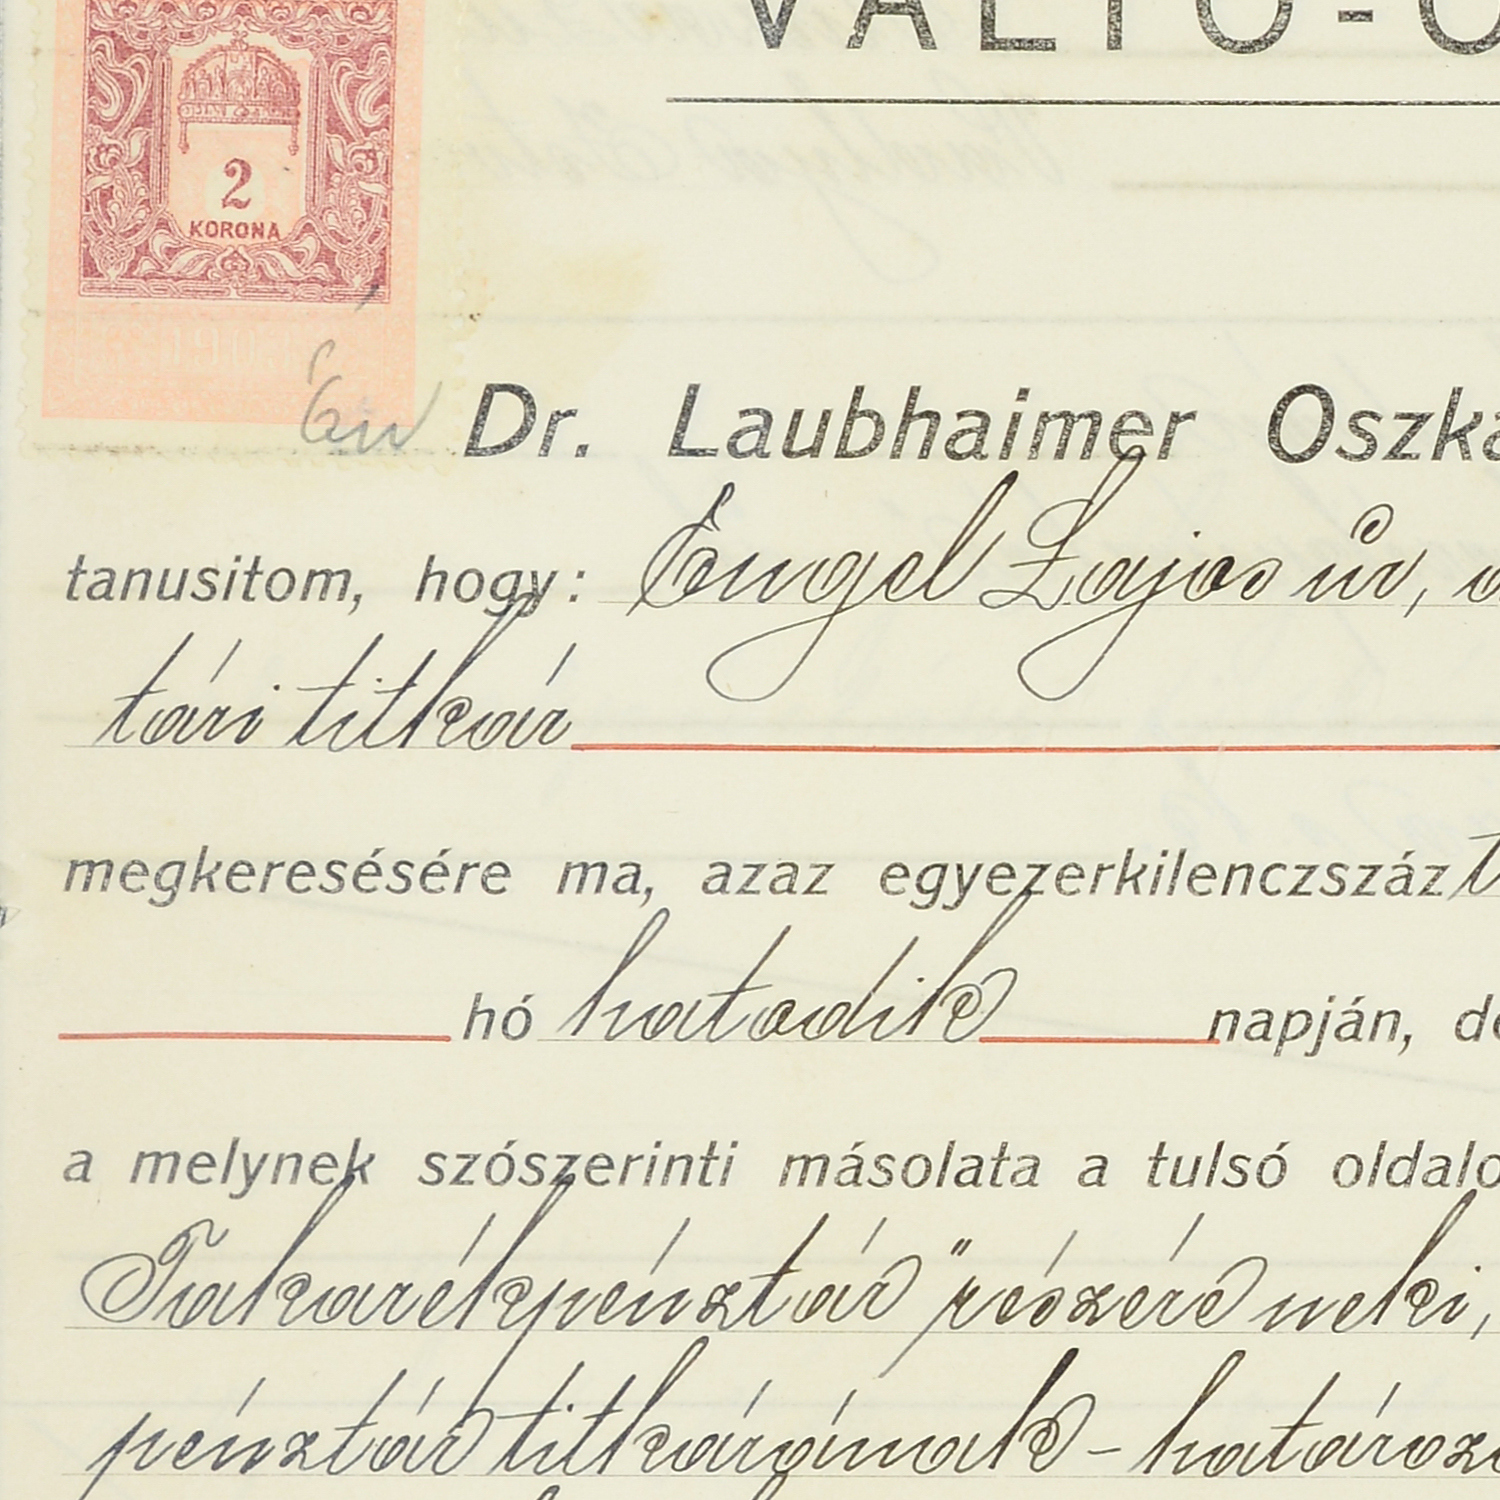 VÁLTÓ-Ó
2
KORONA
Én Dr. Laubhaimer Oszká
tanusitom, hogy: Engel Lajos úr,
tári titkár
megkeresésére ma, azaz egyezerkilenczszáz
hó hatodik napján, de
a melynek szószerinti másolata a tulsó oldalo
Takarékpénztár" részére neki,
pénztár titkárának - határoz